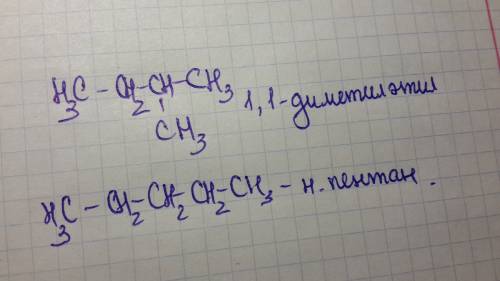 H₃C - CH₂-CH-CH₃ 1,1-диметилэтил
CH₃
H₃C - CH₂-CH₂-CH₂-CH₃ - н. пентан.